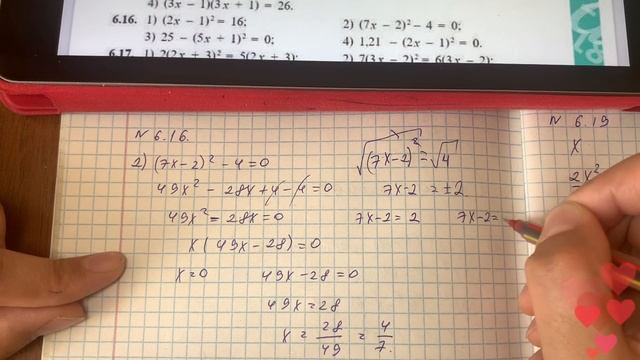 4) (3x − 1)(3x + 1) = 26.
6.16. 1) (2x − 1)² = 16; 2) (7x − 2)² − 4 = 0;
3) 25 − (5x + 1)² = 0; 4) 1,21 − (2x − 1)² = 0.
6.17. 1) 2(2x + 3)² = 5(2x + 3); 2) 7(3x − 2)² = 6(3x − 2);
N 6.16.
2) (7x-2)² - 4 = 0
49x² - 28x + 4 - 4 = 0
49x² - 28x = 0
x(49x - 28) = 0
x = 0 49x - 28 = 0
49x = 28
x = 28/49 = 4/7.
√(7x-2)² = √4
7x-2 = ±2
7x-2 = 2 7x-2 =
N 6.19
x
2x²